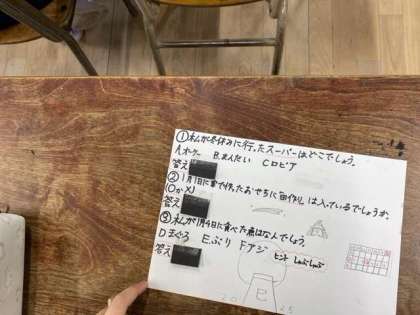 ①私が冬休みに行ったスーパーはどこでしょう。
A.オーケー B.まんたい Cロピア
答え
②1月1日に家で作ったおせちに
は入っているでしょうか。
⓪か×
答え
③私が1月4日に食べた魚はなんでしょう。
Dまぐろ E.ぶり Fアジ
答え
ヒント しゃぶしゃぶ
巳
20 25